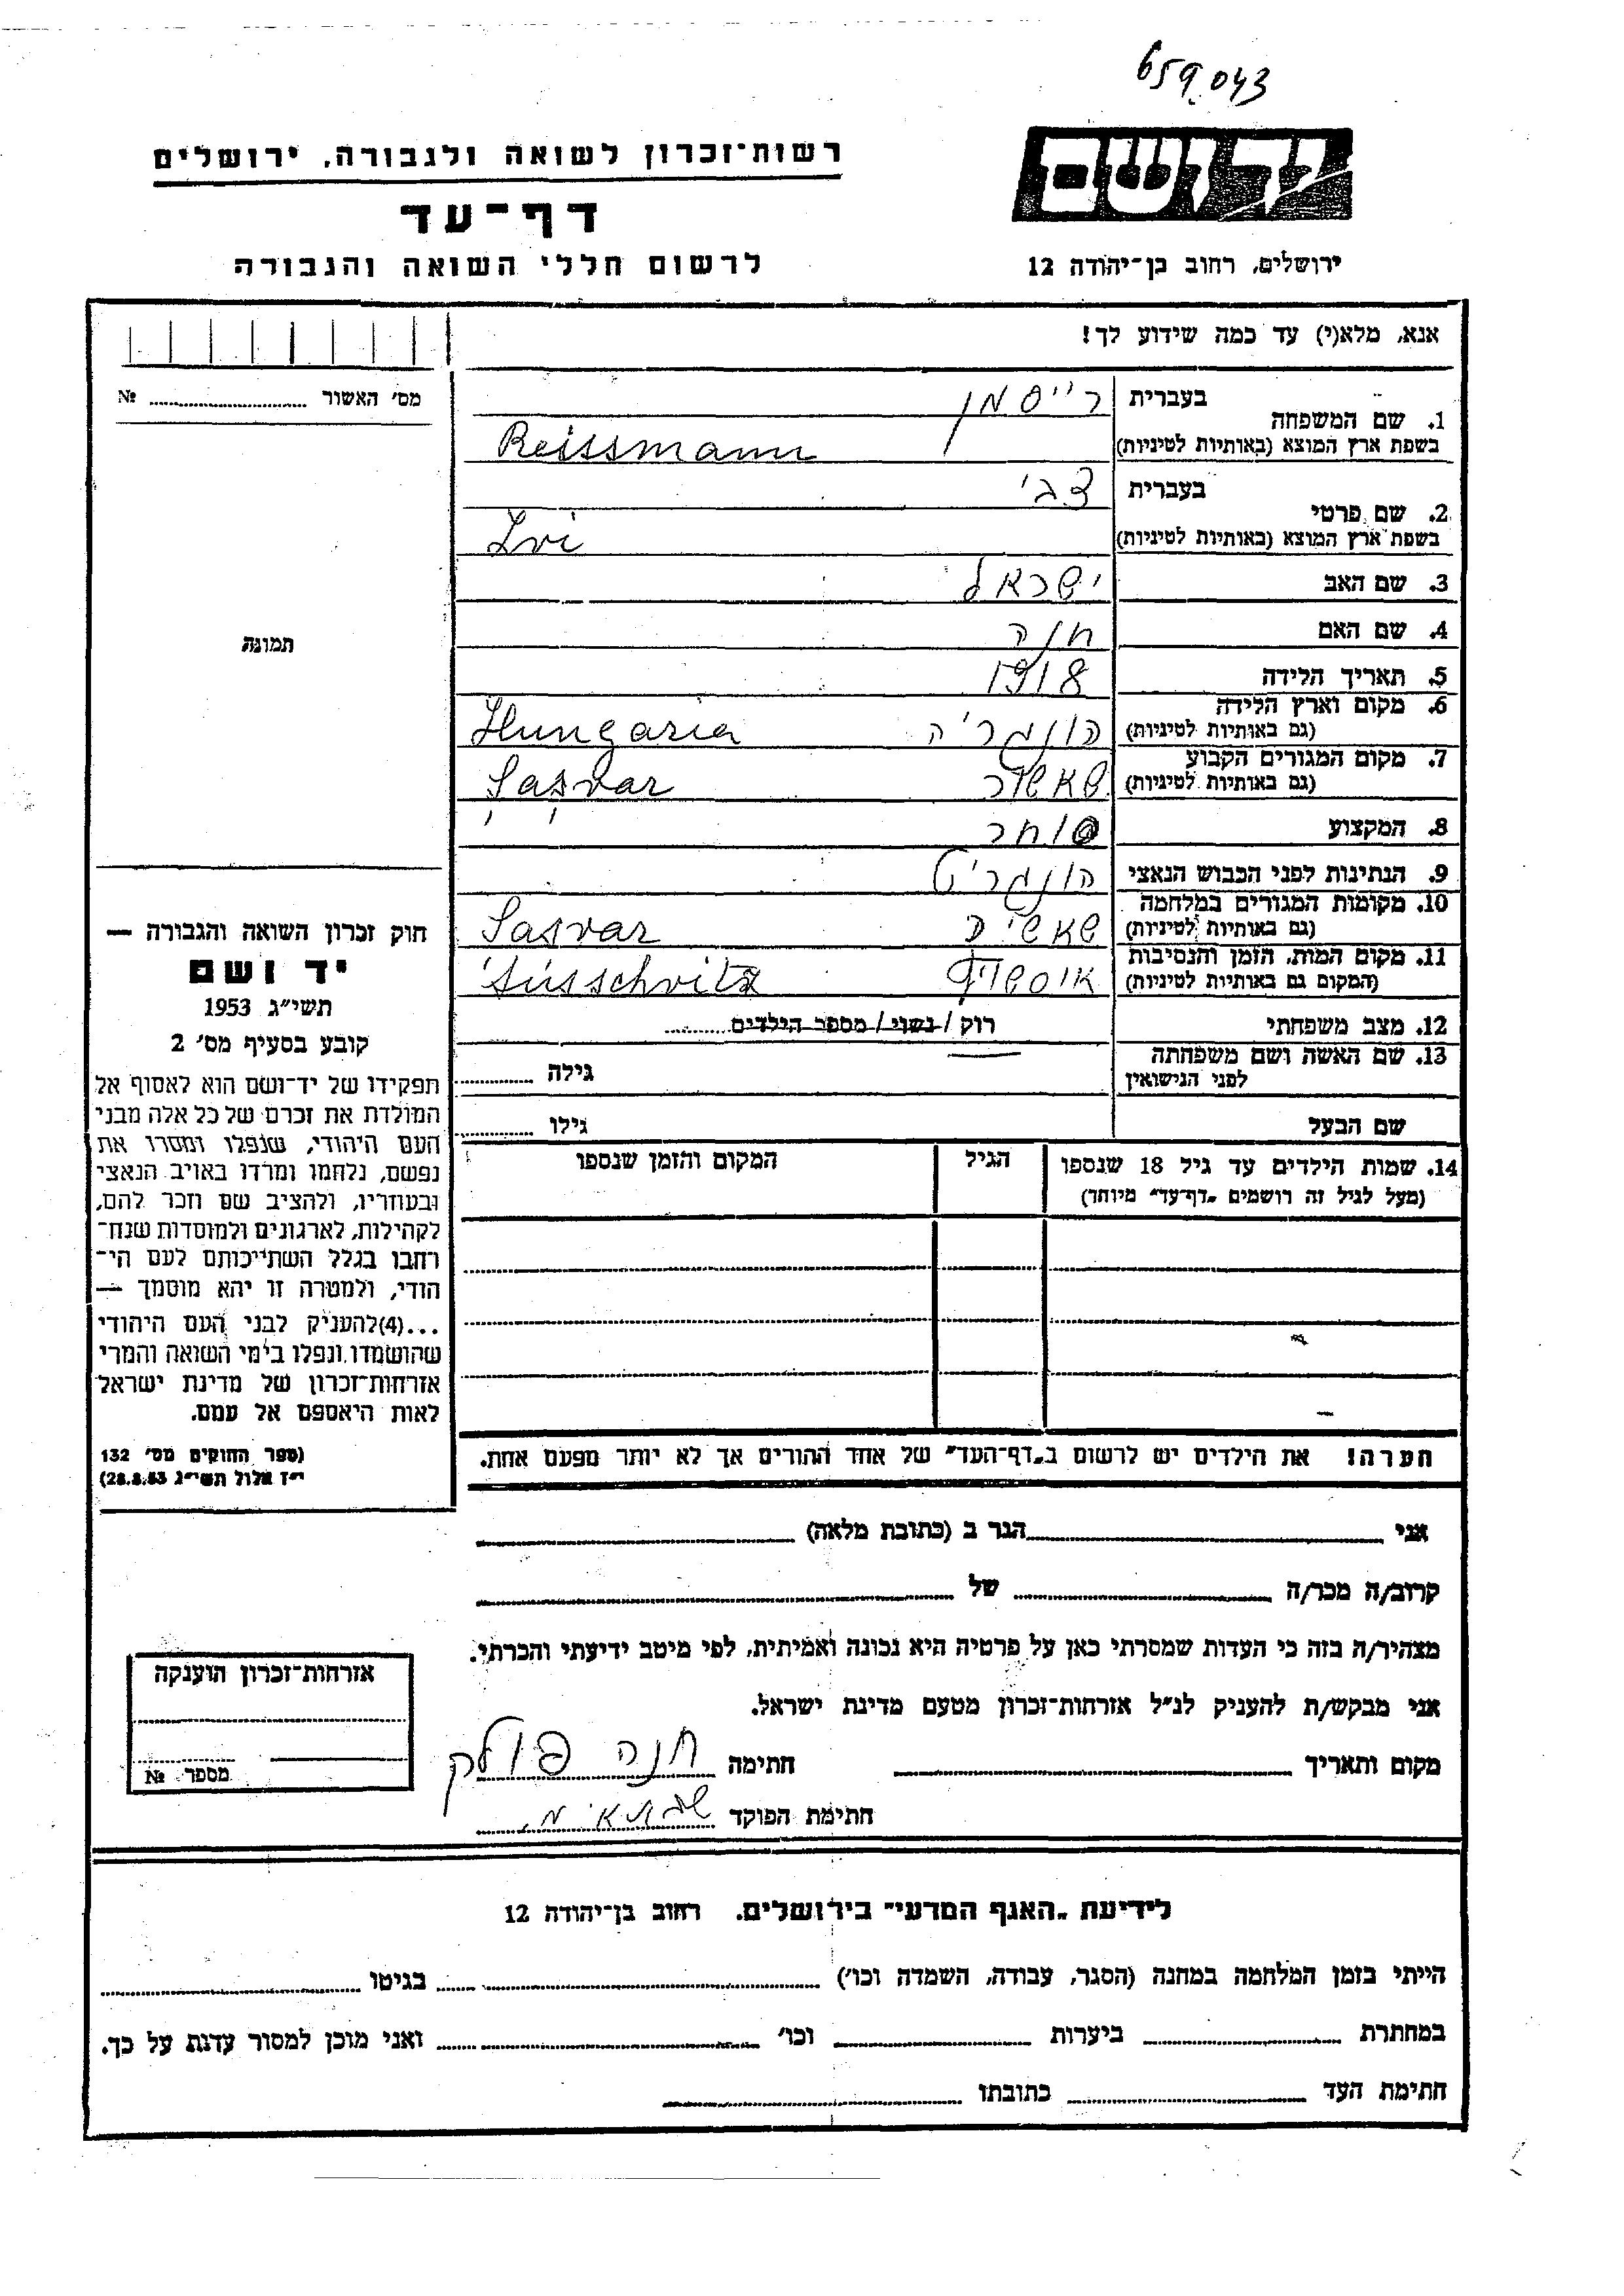 659.043
יד ושם
ירושלים, רחוב בן־יהודה 12
רשות־זכרון לשואה ולגבורה, ירושלים
דף־עד
לרשום חללי השואה והגבורה
אנא, מלא(י) עד כמה שידוע לך!
מס׳ האשור ........ №
1. שם המשפחה
בעברית רייסמן
בשפת ארץ המוצא (באותיות לטיניות) Reissmann
2. שם פרטי
בעברית צבי
בשפת ארץ המוצא (באותיות לטיניות) Zvi
3. שם האב ישראל
4. שם האם חנה
5. תאריך הלידה 1918
6. מקום וארץ הלידה
(גם באותיות לטיניות) הונגריה Hungaria
7. מקום המגורים הקבוע
(גם באותיות לטיניות) Sasvar
8. המקצוע סוחר
9. הנתינות לפני הכבוש הנאצי הונגרית
10. מקומות המגורים במלחמה
(גם באותיות לטיניות) Sasvar
11. מקום המות, הזמן והנסיבות
(המקום גם באותיות לטיניות) Ausschvitz
12. מצב משפחתי רוק / נשוי / מספר הילדים........
13. שם האשה ושם משפחתה
לפני הנישואין
גילה ........
שם הבעל גילו ........
14. שמות הילדים עד גיל 18 שנספו
(מעל לגיל זה רושמים „דף־עד” מיוחד)
הגיל
המקום והזמן שנספו
הערה! את הילדים יש לרשום ב„דף־העד” של אחד ההורים אך לא יותר מפעם אחת.
תמונה
חוק זכרון השואה והגבורה —
יד ושם
תשי״ג 1953
קובע בסעיף מס׳ 2
תפקידו של יד־ושם הוא לאסוף אל
המולדת את זכרם של כל אלה מבני
העם היהודי, שנפלו ומסרו את
נפשם, נלחמו ומרדו באויב הנאצי
ובעוזריו, ולהציב שם וזכר להם,
לקהילות, לארגונים ולמוסדות שנח־
רבו בגלל השתייכותם לעם הי־
הודי, ולמטרה זו יהא מוסמך —
...(4)להעניק לבני העם היהודי
שהושמדו ונפלו בימי השואה והמרי
אזרחות־זכרון של מדינת ישראל
לאות היאספם אל עמם.
(ספר החוקים מס׳ 132
י״ז אלול תשי״ג 28.8.53)
אני ........ הגר ב (כתובת מלאה) ........
קרוב/ה מכר/ה ........ של ........
מצהיר/ה בזה כי העדות שמסרתי כאן על פרטיה היא נכונה ואמיתית, לפי מיטב ידיעתי והכרתי.
אני מבקש/ת להעניק לנ״ל אזרחות־זכרון מטעם מדינת ישראל.
מקום ותאריך ........ חתימה חנה פולק
חתימת הפוקד
אזרחות־זכרון הוענקה
מספר №
לידיעת „האגף המדעי” בירושלים, רחוב בן־יהודה 12
הייתי בזמן המלחמה במחנה (הסגר, עבודה, השמדה וכו׳) ........ בגיטו ........
במחתרת ........ ביערות ........ וכו׳ ........ ואני מוכן למסור עדות על כך.
חתימת העד ........ כתובתו ........